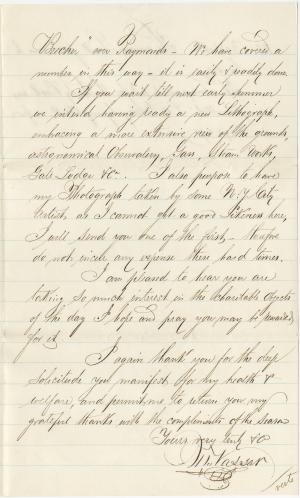 Beecher" over Raymonds - We have covered a
number in this way - it is easily & readily done.
If you wait till next early summer
we intend having ready a new Lithograph,
embracing a more extensive view of the grounds,
astronomical Observatory, Gas, Steam works,
Gate Lodge &c. I also propose to have
my Photograph taken by some N. Y. City
Artist, as I cannot get a good likeness here,
I will send you one of the first,
do not incur any expense these hard times.
I am pleased to hear you are
taking so much interest in the charitable objects
of the day I hope and pray you may be rewarded
for it
I again thank you for the deep
solicitude you manifest for my health &
welfare, and permit me to return you my
grateful thanks with the compliments of the season
Yours very truly &c
M Vassar